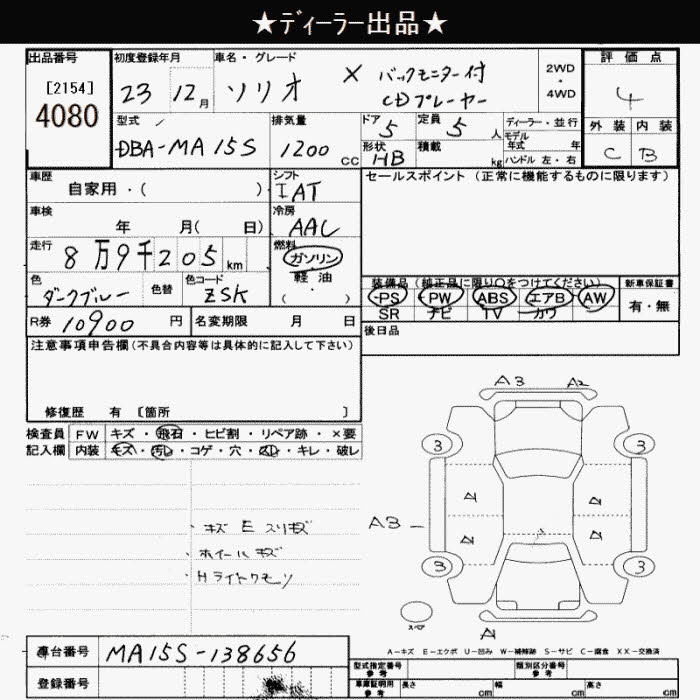 ★ディーラー出品★
出品番号 初度登録年月 車名・グレード 評価点
[2154] 4080
23 12月 ソリオ × バックモニター付 2WD・4WD 4
CDプレーヤー
型式 排気量 ドア 5 定員 5人 ディーラー・並行 外装 内装
DBA-MA15S 1200cc モデル年式 年 C B
形状 HB 積載 kg ハンドル 左・右
車歴 シフト セールスポイント (正常に機能するものに限ります)
自家用・( ) IAT
車検 冷房
年 月( 日) AAC
走行 燃料
8万9千205km ガソリン
軽油
( )
色 色替 色コード 装備品 (純正品に限り○をつけてください) 新車保証書
ダークブルー ZSK PS PW ABS エアB AW 有・無
SR ナビ TV カワ
R券 10900円 名変期限 月 日 後日品
注意事項申告欄(不具合内容等は具体的に記入して下さい)
修復歴 有 [箇所 ]
検査員 FW キズ・飛石・ヒビ割・リペア跡・×要
記入欄 内装 キズ・汚レ・コゲ・穴・スレ・キレ・破レ
A3 A2
3 3
A A
A3
A A
3 3
スペア
A
・キズ E スリキズ
・ホイールキズ
・Hライトクモリ
A-キズ E-エクボ U-凹み W-補修跡 S-サビ C-腐食 XX-交換済
車台番号 MA15S-138656
登録番号
型式指定番号 参考 類別区分番号 参考
車庫証明用 参考 長さ cm 幅 cm 高さ cm